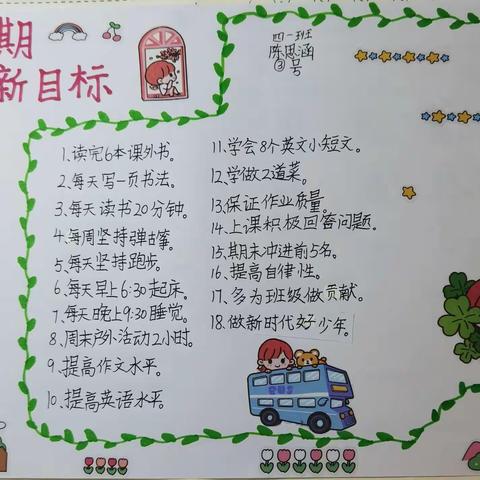 期
新目标
四一班
陈思涵
③号
1、读完6本课外书。
2、每天写一页书法。
3、每天读书20分钟。
4、每周坚持弹古筝。
5、每天坚持跑步。
6、每天早上6:30起床。
7、每天晚上9:30睡觉。
8、周末户外活动2小时。
9、提高作文水平。
10、提高英语水平。
11、学会8个英文小短文。
12、学做2道菜。
13、保证作业质量。
14、上课积极回答问题。
15、期末冲进前5名。
16、提高自律性。
17、多为班级做贡献。
18、做新时代好少年。